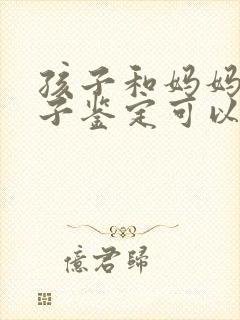 孩子和妈妈
子鉴定可以
億君歸